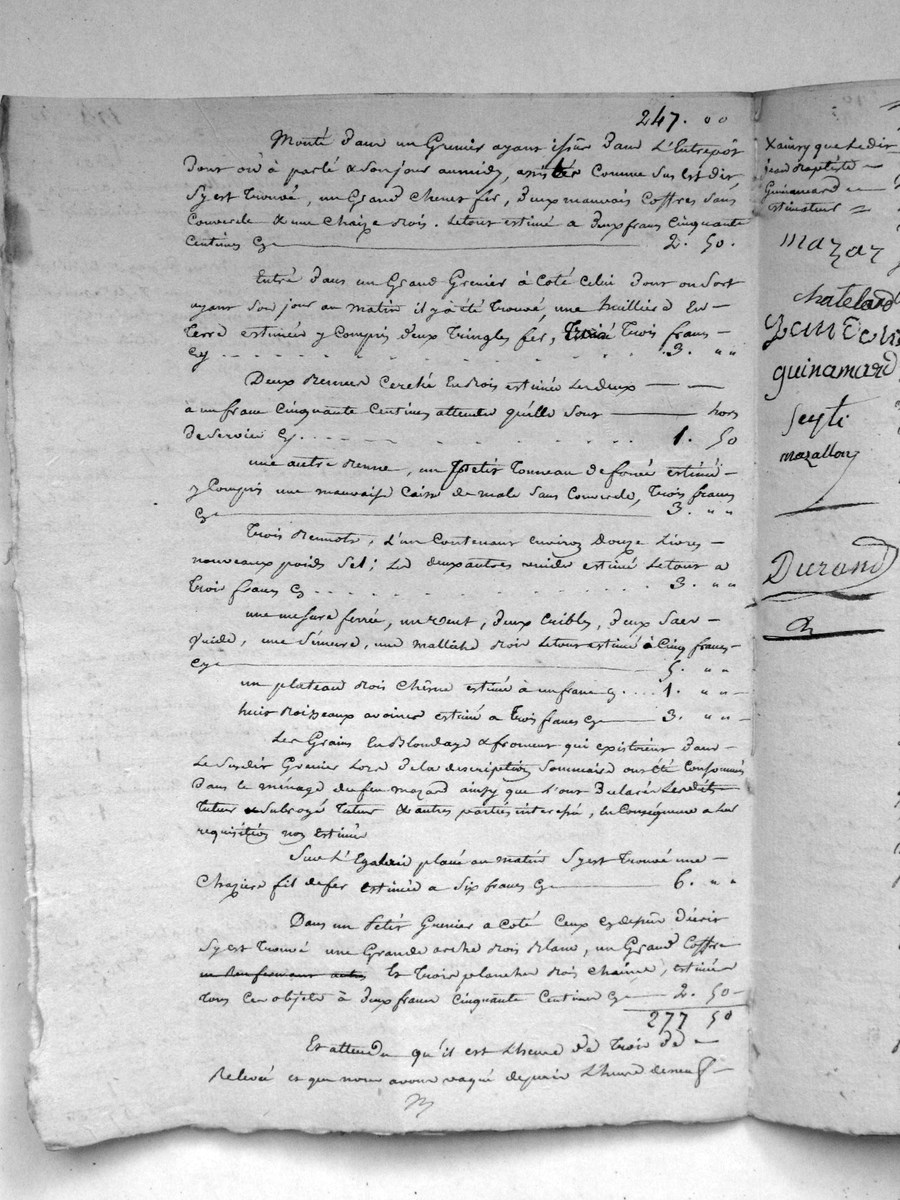 247. " "
Monté dans un Grenier ayant issüe dans L'Entrepôt
dont on à parlé & son jour aumidy, assistés comme Sus est dit
Sy est trouvé, un Grand chenet fer, deux mauvais Coffres sans
Couvercle & une chaize Bois. Le tout estimé a deux francs Cinquante
Centimes Cy 2. 50.
Entré dans un Grand Grenier à Coté Celui dont on Sort
ayant Son jour au matin il y à été trouvé, une huillierd en
terre estimée y Compris deux tringles fer, trois francs
Cy 3. " "
Deux Bennes Cerclé en Bois estimée Les deux
à un franc Cinquante Centimes attendu qu'elle Sont hors
de service Cy 1. 50
une autre Benne, un petit tonneau estimé
y Compris une mauvaise Caisse de male Sans Couvercle, trois francs
Cy 3. " "
trois Bennots, L'un Contenant environ douze Livres
nouveaux poids Sel; Les deux autres vuides estimé Le tout a
trois francs Cy 3. " "
une mesure ferrée, un vent, deux Cribles, deux Sacs
vuide, une malliade Bois Le tout estimé à Cinq francs
Cy 5. " "
un plateau Bois Chêne estimé à un franc Cy 1. " "
huit Boisseaux avoines estimé a trois francs Cy 3. " "
Les Grains en Blondage & froment qui existoient dans
Le Susdit Grenier Lors de la description Sommaire ont été Consommés
dans Le ménage du feu mazard ainsy que L'ont déclaré Lesdits
tuteur & Subrogé tuteur & autres parties interessé, en Conséquence a Leur
requisition non estimé
Sur L'Egalerie placé au matin Sy est trouvé une
Chazière fil de fer estimée a Six francs Cy 6. " "
Dans un Petit Grenier a Coté Ceux Cy dessus décrit
Sy est trouvé une Grande arche Bois Blanc, un Grand Coffre
& trois planches Bois chaine, estimée
tous Ces objets à deux francs Cinquante Centimes Cy 2. 50
277 50
Et attendu qu'il est L'heure de trois de
Relevé et que nous avons vaqué depuis L'heure de neuf
Xainsy que Ledit
jean Baptiste
Guinamard
estimateur
mazar
chatelard
guinamard
Seyti
mazallon
Durand